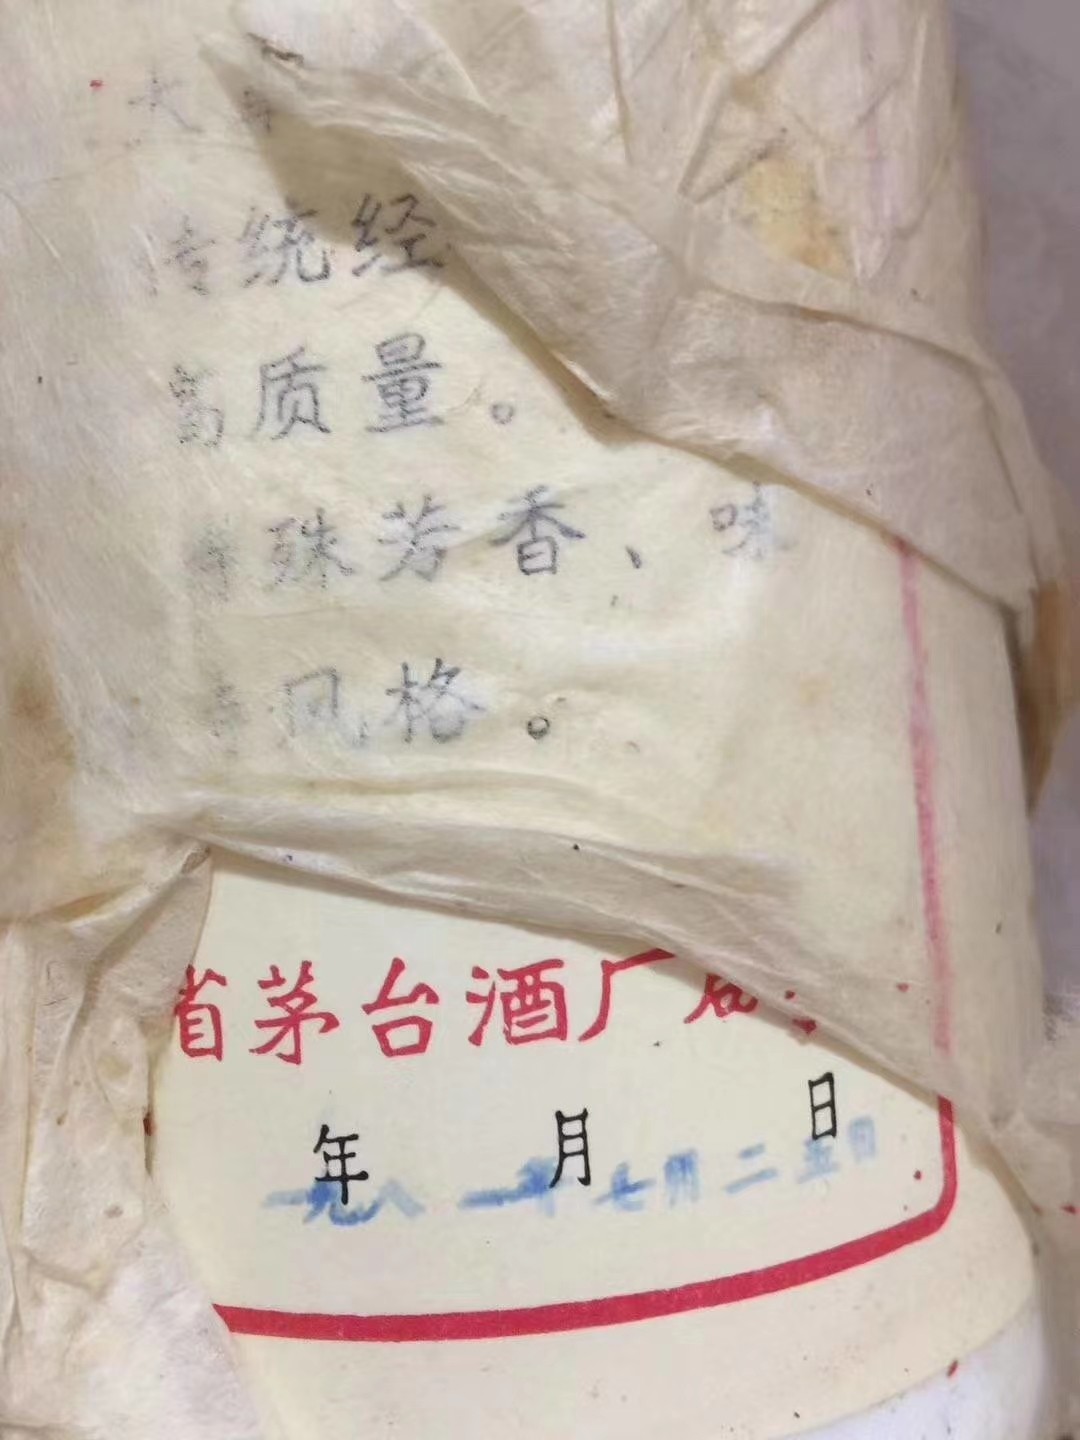 大
传统经
高质量。
特殊芳香、味
风格。
省茅台酒厂
年 月 日
一九八一年七月二五日